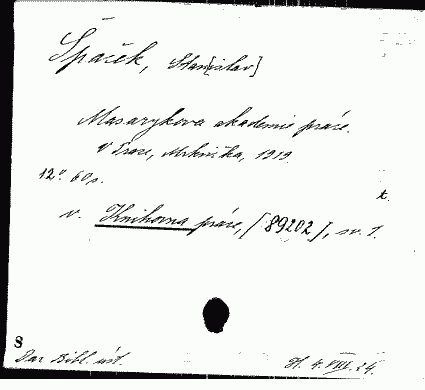 Špaček, Stan[islav]
Masarykova akademie práce.
V Praze, 1919.
12°. 60 s.
t.
v. Knihovna práce, [89202], sv. 1.
8
Dar Bibl. úst.
H. 4. VIII. 24.